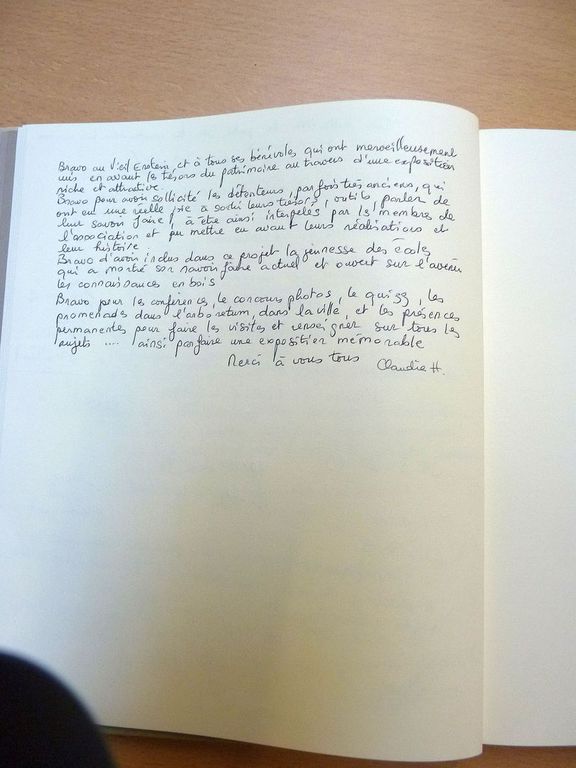 Bravo au Vieil Erstein, et à tous ses bénévoles qui ont merveilleusement
mis en avant les trésors du patrimoine au travers d'une exposition
riche et attractive.
Bravo pour avoir sollicité les détenteurs, parfois très anciens, qui
ont eu une réelle joie à sortir leurs trésors, outils, parler de
leur savoir faire, à être ainsi interpelés par les membres de
l'association et pu mettre en avant leurs réalisations et
leur histoire
Bravo d'avoir inclus dans ce projet la jeunesse des écoles
qui a montré son savoir faire actuel et ouvert sur l'avenir
les connaissances en bois
Bravo pour les conférences, le concours photos, le quizz, les
promenades dans l'arboretum, dans la ville, et les présences
permanentes pour faire les visites et renseigner sur tous les
sujets .... ainsi parfaire une exposition mémorable
Merci à vous tous Claudia H.